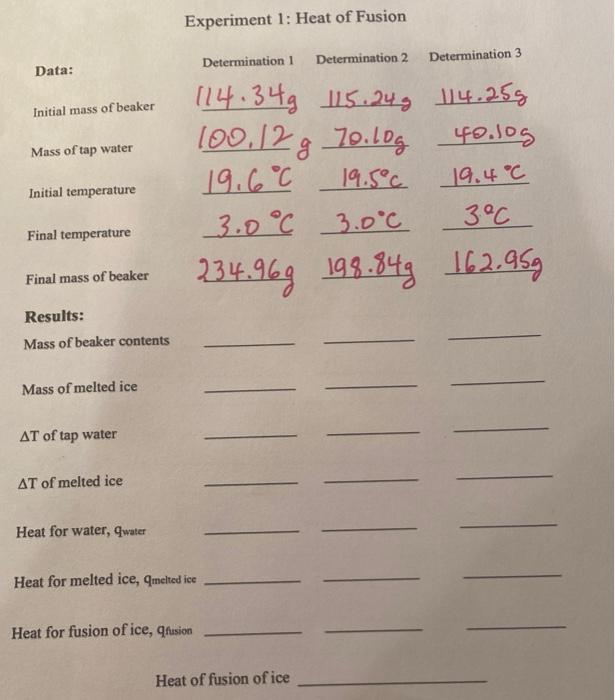 Experiment 1: Heat of Fusion
Data: Determination 1 Determination 2 Determination 3
Initial mass of beaker 114.34g 115.24g 114.25g
Mass of tap water 100.12g 70.10g 40.10g
Initial temperature 19.6°C 19.5°C 19.4°C
Final temperature 3.0°C 3.0°C 3°C
Final mass of beaker 234.96g 198.84g 162.95g
Results:
Mass of beaker contents
Mass of melted ice
ΔT of tap water
ΔT of melted ice
Heat for water, qwater
Heat for melted ice, qmelted ice
Heat for fusion of ice, qfusion
Heat of fusion of ice